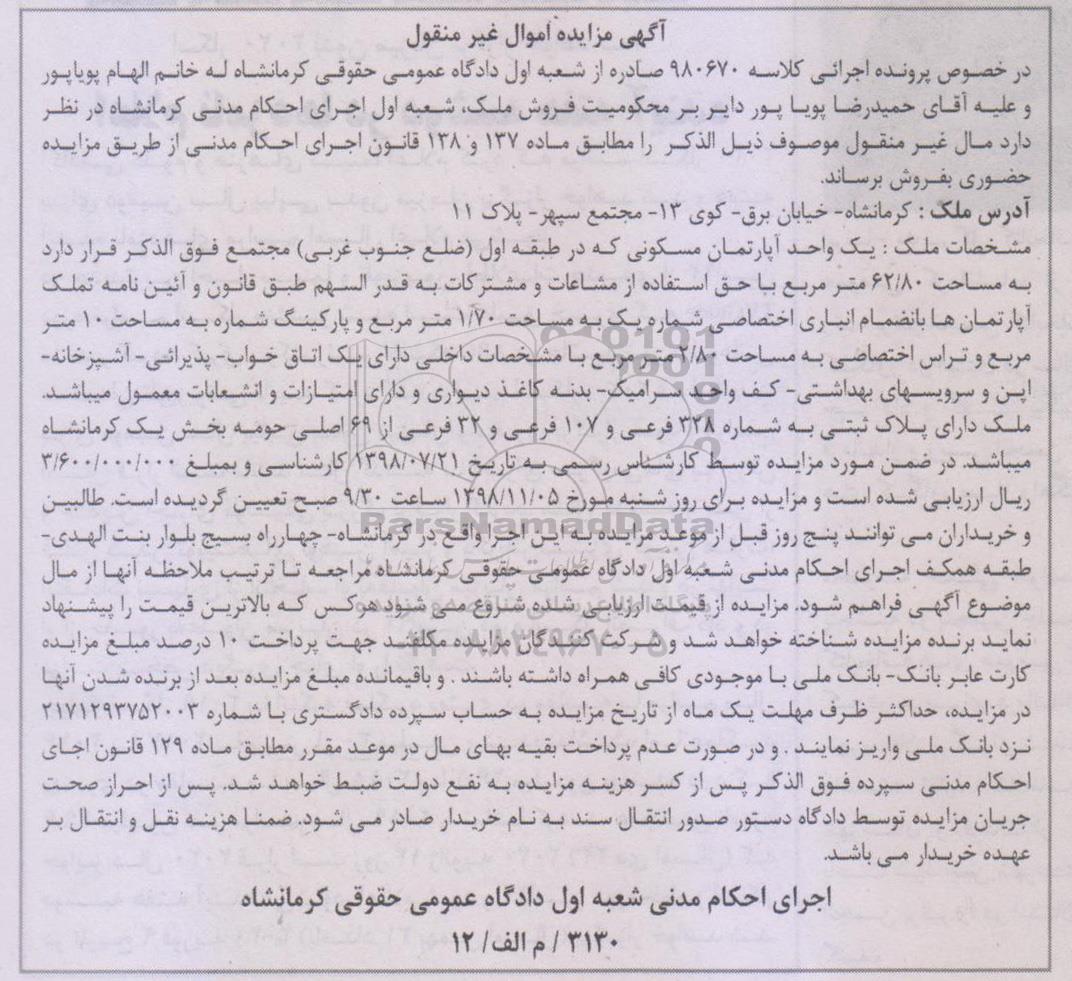 آگهی مزایده اموال غیر منقول
در خصوص پرونده اجرائی کلاسه ۹۸۰۶۷۰ صادره از شعبه اول دادگاه عمومی حقوقی کرمانشاه له خانم الهام پویاپور
و علیه آقای حمیدرضا پویا پور دایر بر محکومیت فروش ملک، شعبه اول اجرای احکام مدنی کرمانشاه در نظر
دارد مال غیر منقول موصوف ذیل الذکر را مطابق ماده ۱۳۷ و ۱۳۸ قانون اجرای احکام مدنی از طریق مزایده
حضوری بفروش برساند.
آدرس ملک : کرمانشاه- خیابان برق- کوی ۱۳- مجتمع سپهر- پلاک ۱۱
مشخصات ملک : یک واحد آپارتمان مسکونی که در طبقه اول (ضلع جنوب غربی) مجتمع فوق الذکر قرار دارد
به مساحت ۶۲/۸۰ متر مربع با حق استفاده از مشاعات و مشترکات به قدر السهم طبق قانون و آئین نامه تملک
آپارتمان ها بانضمام انباری اختصاصی شماره یک به مساحت ۱/۷۰ متر مربع و پارکینگ شماره به مساحت ۱۰ متر
مربع و تراس اختصاصی به مساحت ۲/۸۰ متر مربع با مشخصات داخلی دارای یک اتاق خواب- پذیرائی- آشپزخانه-
اپن و سرویسهای بهداشتی- کف واحد سرامیک- بدنه کاغذ دیواری و دارای امتیازات و انشعابات معمول میباشد.
ملک دارای پلاک ثبتی به شماره ۳۲۸ فرعی و ۱۰۷ فرعی و ۳۲ فرعی از ۶۹ اصلی حومه بخش یک کرمانشاه
میباشد. در ضمن مورد مزایده توسط کارشناس رسمی به تاریخ ۱۳۹۸/۰۷/۲۱ کارشناسی و بمبلغ ۳/۶۰۰/۰۰۰/۰۰۰
ریال ارزیابی شده است و مزایده برای روز شنبه مورخ ۱۳۹۸/۱۱/۰۵ ساعت ۹/۳۰ صبح تعیین گردیده است. طالبین
و خریداران می توانند پنج روز قبل از موعد مزایده به این اجرا واقع در کرمانشاه- چهارراه بسیج بلوار بنت الهدی-
طبقه همکف اجرای احکام مدنی شعبه اول دادگاه عمومی حقوقی کرمانشاه مراجعه تا ترتیب ملاحظه آنها از مال
موضوع آگهی فراهم شود. مزایده از قیمت ارزیابی شده شروع می شود هرکس که بالاترین قیمت را پیشنهاد
نماید برنده مزایده شناخته خواهد شد و شرکت کنندگان مزایده مکلفند جهت پرداخت ۱۰ درصد مبلغ مزایده
کارت عابر بانک- بانک ملی با موجودی کافی همراه داشته باشند . و باقیمانده مبلغ مزایده بعد از برنده شدن آنها
در مزایده، حداکثر ظرف مهلت یک ماه از تاریخ مزایده به حساب سپرده دادگستری با شماره ۲۱۷۱۲۹۳۷۵۲۰۰۳
نزد بانک ملی واریز نمایند . و در صورت عدم پرداخت بقیه بهای مال در موعد مقرر مطابق ماده ۱۲۹ قانون اجای
احکام مدنی سپرده فوق الذکر پس از کسر هزینه مزایده به نفع دولت ضبط خواهد شد. پس از احراز صحت
جریان مزایده توسط دادگاه دستور صدور انتقال سند به نام خریدار صادر می شود. ضمنا هزینه نقل و انتقال بر
عهده خریدار می باشد.
اجرای احکام مدنی شعبه اول دادگاه عمومی حقوقی کرمانشاه
۳۱۳۰ / م الف/ ۱۲
ParsNamadData